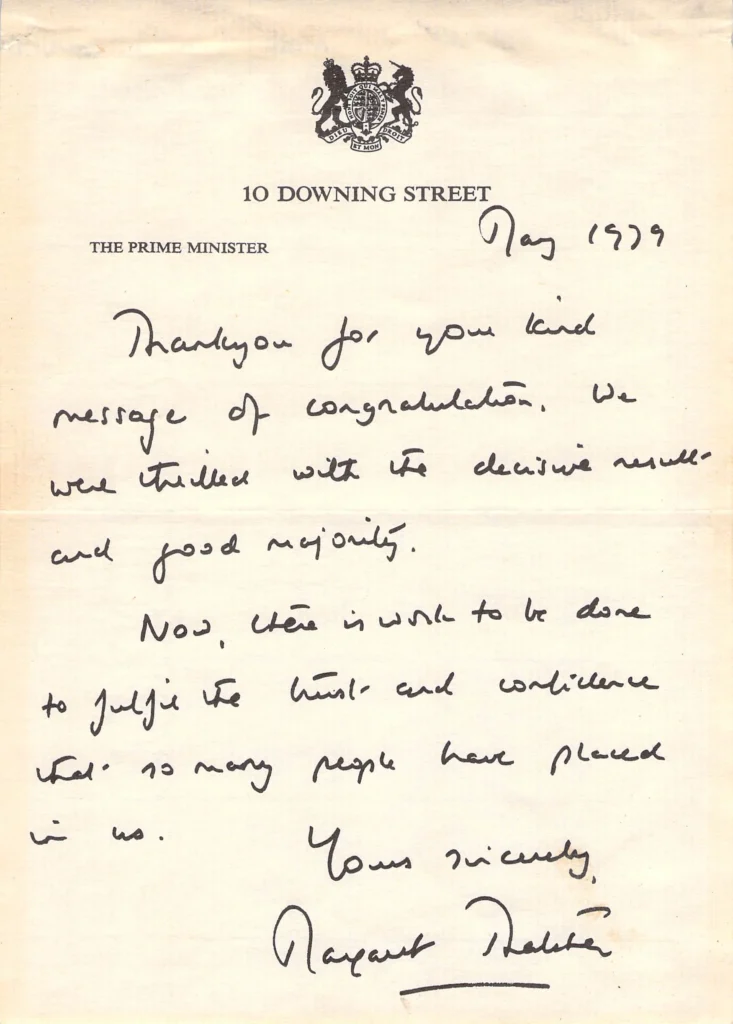 10 DOWNING STREET
May 1979
THE PRIME MINISTER
Thankyou for your kind
message of congratulation. We
were thrilled with the decisive result
and good majority.
Now, there is work to be done
to fulfil the trust and confidence
that so many people have placed
in us.
Yours sincerely,
Margaret Thatcher